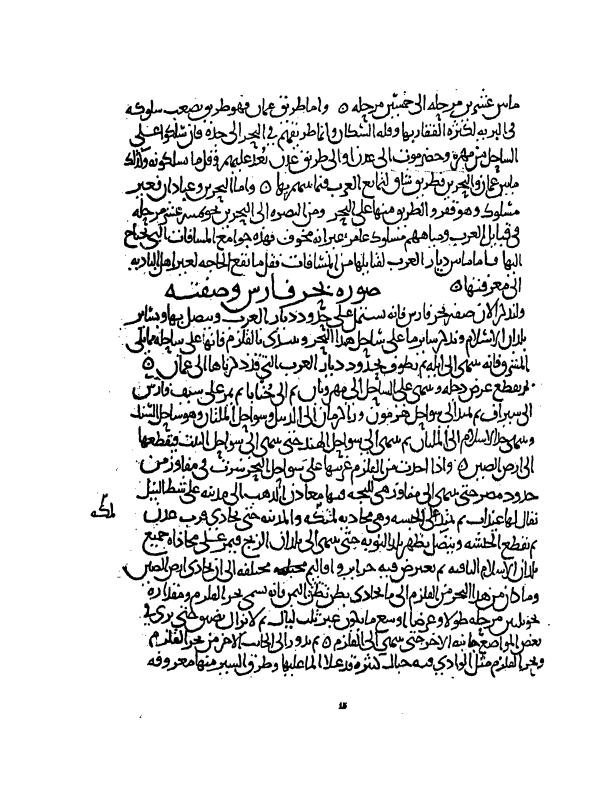 ما بين عشرين مرحله الى خمسين مرحله ٥ واما طريق عمان فهو طريق يصعب سلوكه
في البريه لكثره القفار بها وقله السكان وانما طريقهم في البحر الى جده فان سلكوا على
الساحل من مهرة وحضرموت الى عدن او الى طريق عدن بعد عليهم وقل ما يسلكونه وكذلك
ما بين عمان والبحرين فطريق شاق لتمانع العرب فيما بينهم بها ٥ واما البحرين وعبادان فغير
مسلوك وهو قفر والطريق منها على البحر ومن البصره الى البحرين نحو من عشر مرحله
في قبايل العرب ومياههم مسلوك عامر غير انه مخوف فهذه جوامع المسافات التي يحتاج
اليها فاما ما بين ديار العرب لقبايلها من المسافات فقل ما تقع الحاجه لغير اهل الباديه
الى معرفتها ٥
صورة بحر فارس وصفته
ولنذكر الان صفه بحر فارس فانه يشتمل على حدود ديار العرب ويتصل بها وبساير
بلدان الاسلام ونذكر ساير ما على ساحل هذا البحر ونبتدى بالقلزم فانها على ساحله مما يلى
المشرق فانه ينتهى الى ايله ثم يطوف بحدود ديار العرب التى قد ذكرناها الى عبادان ٥
ثم يقطع عرض دجله وينتهى على الساحل الى مهروبان ثم الى جنابا ثم يمر على سيف فارس
الى سيراف ثم يمتد الى سواحل هرموز ورا كرمان الى الديبل وسواحل الملتان وهو ساحل السند
وينتهى حد الاسلام الى الملتان ثم ينتهى الى سواحل الهند حتى ينتهى الى سواحل التبت فيقطعها
الى ارض الصين ٥ واذا اخذت من القلزم غربيها على سواحل البحر سرت فى مفاوز من
حدود مصر حتى تنتهى الى مفاوز هى للبجه فيها معادن الذهب الى مدينه على شط البحر
يقال لها عيذاب ثم يمتد على الحبشه وهى محاذيه لمكه والمدينه حتى يحاذى قرب عدن
ثم يقطع الحبشه ويتصل بظهر بلد النوبه حتى ينتهى الى بلدان الزنج فيمر على محاذاه جميع
بلدان الاسلام الباقيه ثم يعترض فيه جزاير واقاليم مختلفه مختلفه الى ان يحاذى ارض الصين
وما كان من هذا البحر من القلزم الى ما يحاذى بطن اليمن فانه يسمى بحر القلزم ومقداره
نحو ثلثين مرحله طولا وعرضا اوسع ما يكون عبر ثلث ليال ثم لا يزال يضيق حتى يرى فى
بعض المواضع جانبه الاخر حتى ينتهى الى القلزم ٥ ثم يدور الى الجانب الاخر من بحر القلزم
وبحر القلزم مثل الوادى فيه جبال كثيره قد علا الما عليها وطرق السير منها معروفه
لمكه